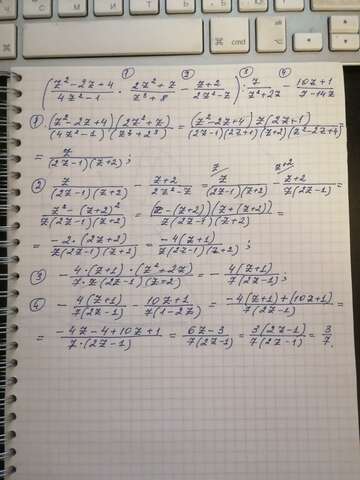 (z²-2z+4/4z²-1 · 2z²+z/z³+8 - z+2/2z²-z) : 7/z²+2z - 10z+1/7-14z
① (z²-2z+4)(2z²+z)/(4z²-1)(z³+2³) = (z²-2z+4) z(2z+1)/(2z-1)(2z+1)(z+2)(z²-2z+4) =
= z/(2z-1)(z+2);
② z/(2z-1)(z+2) - z+2/2z²-z = z/(2z-1)(z+2) - z+2/z(2z-1) =
z²-(z+2)²/z(2z-1)(z+2) = (z-(z+2))(z+(z+2))/z(2z-1)(z+2) =
= -2·(2z+2)/z(2z-1)(z+2) = -4(z+1)/z(2z-1)(z+2);
③ -4·(z+1)·(z²+2z)/7·z(2z-1)(z+2) = -4(z+1)/7(2z-1);
④ -4(z+1)/7(2z-1) - 10z+1/7(1-2z) = -4(z+1)+(10z+1)/7(2z-1) =
= -4z-4+10z+1/7·(2z-1) = 6z-3/7(2z-1) = 3(2z-1)/7(2z-1) = 3/7.